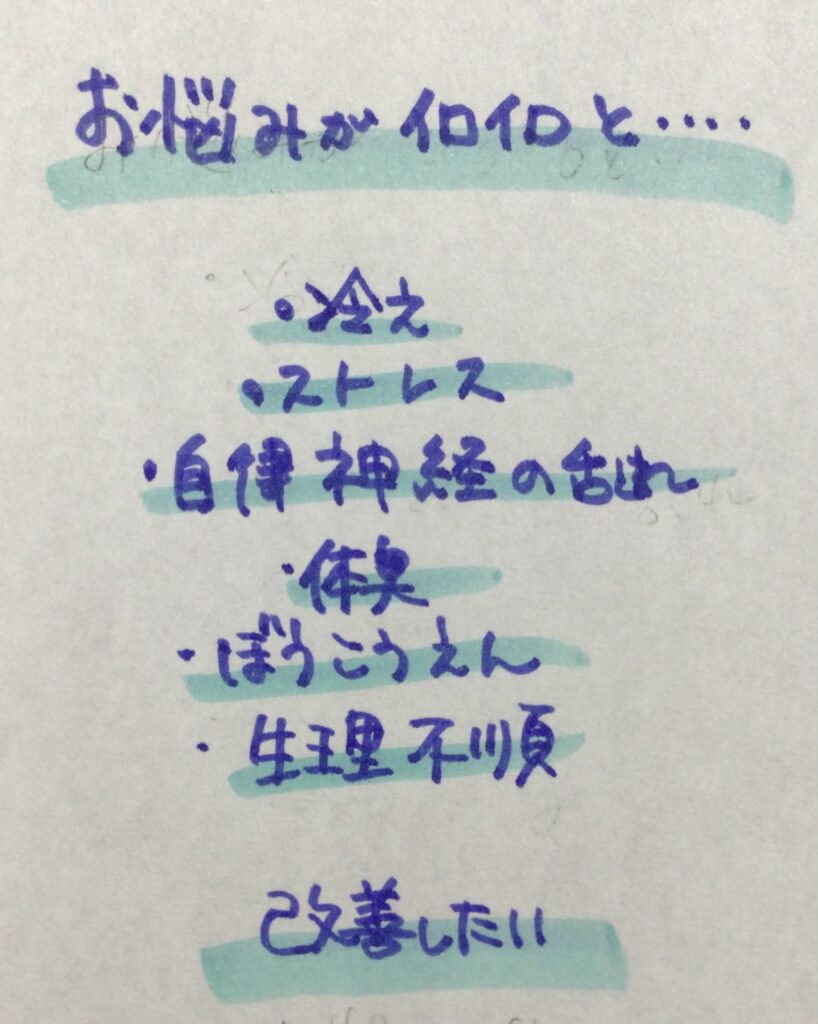 お悩みがイロイロと・・・・・
・冷え
・ストレス
・自律神経の乱れ
・体臭
・ぼうこうえん
・生理不順
改善したい